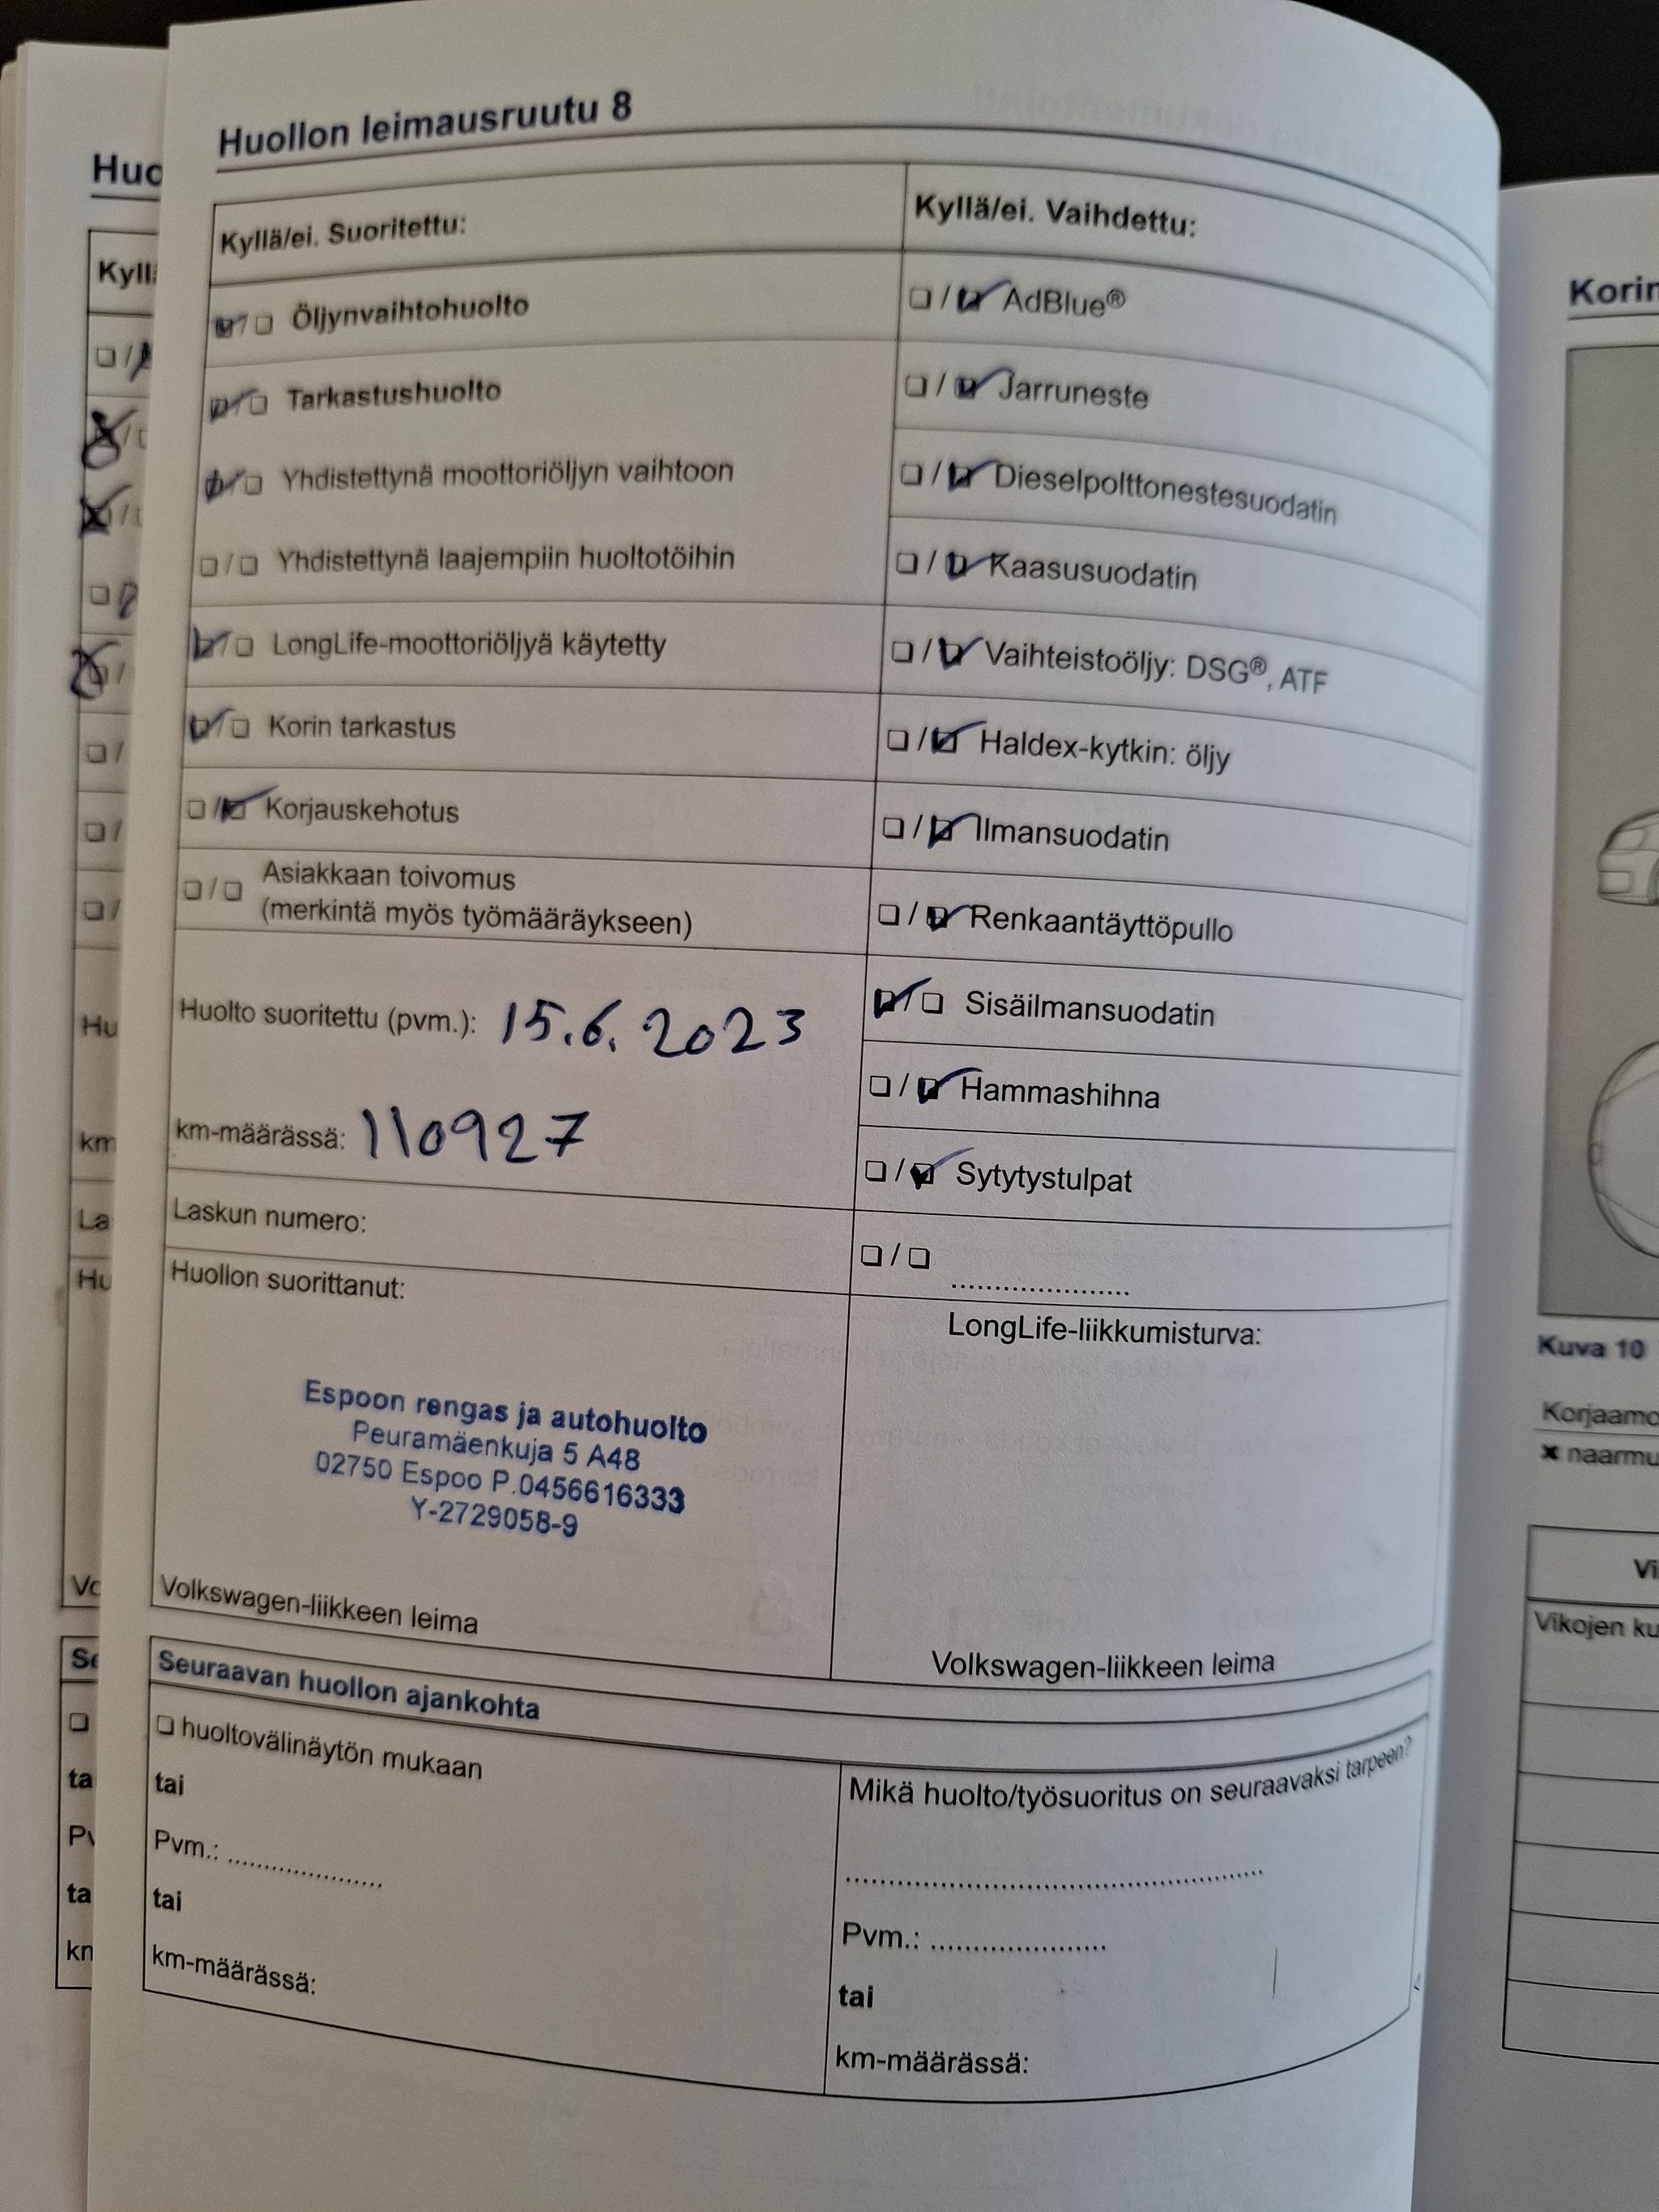 Huollon leimausruutu 8
Kyllä/ei. Suoritettu:
☑/☐ Öljynvaihtohuolto
☑/☐ Tarkastushuolto
☑/☐ Yhdistettynä moottoriöljyn vaihtoon
☐/☐ Yhdistettynä laajempiin huoltotöihin
☑/☐ LongLife-moottoriöljyä käytetty
☑/☐ Korin tarkastus
☐/☑ Korjauskehotus
☐/☐ Asiakkaan toivomus
(merkintä myös työmääräykseen)
Huolto suoritettu (pvm.): 15.6.2023
km-määrässä: 110927
Laskun numero:
Huollon suorittanut:
Espoon rengas ja autohuolto
Peuramäenkuja 5 A48
02750 Espoo P.0456616333
Y-2729058-9
Volkswagen-liikkeen leima
Kyllä/ei. Vaihdettu:
☐/☑ AdBlue®
☐/☑ Jarruneste
☐/☑ Dieselpolttonestesuodatin
☐/☑ Kaasusuodatin
☐/☑ Vaihteistoöljy: DSG®, ATF
☐/☑ Haldex-kytkin: öljy
☐/☑ Ilmansuodatin
☐/☑ Renkaantäyttöpullo
☑/☐ Sisäilmansuodatin
☐/☑ Hammashihna
☐/☑ Sytytystulpat
☐/☐ .....................
LongLife-liikkumisturva:
Volkswagen-liikkeen leima
Seuraavan huollon ajankohta
☐ huoltovälinäytön mukaan
tai
Pvm.: ....................
tai
km-määrässä:
Mikä huolto/työsuoritus on seuraavaksi tarpeen?
..................................................
Pvm.: .....................
tai
km-määrässä:
Kuva 10